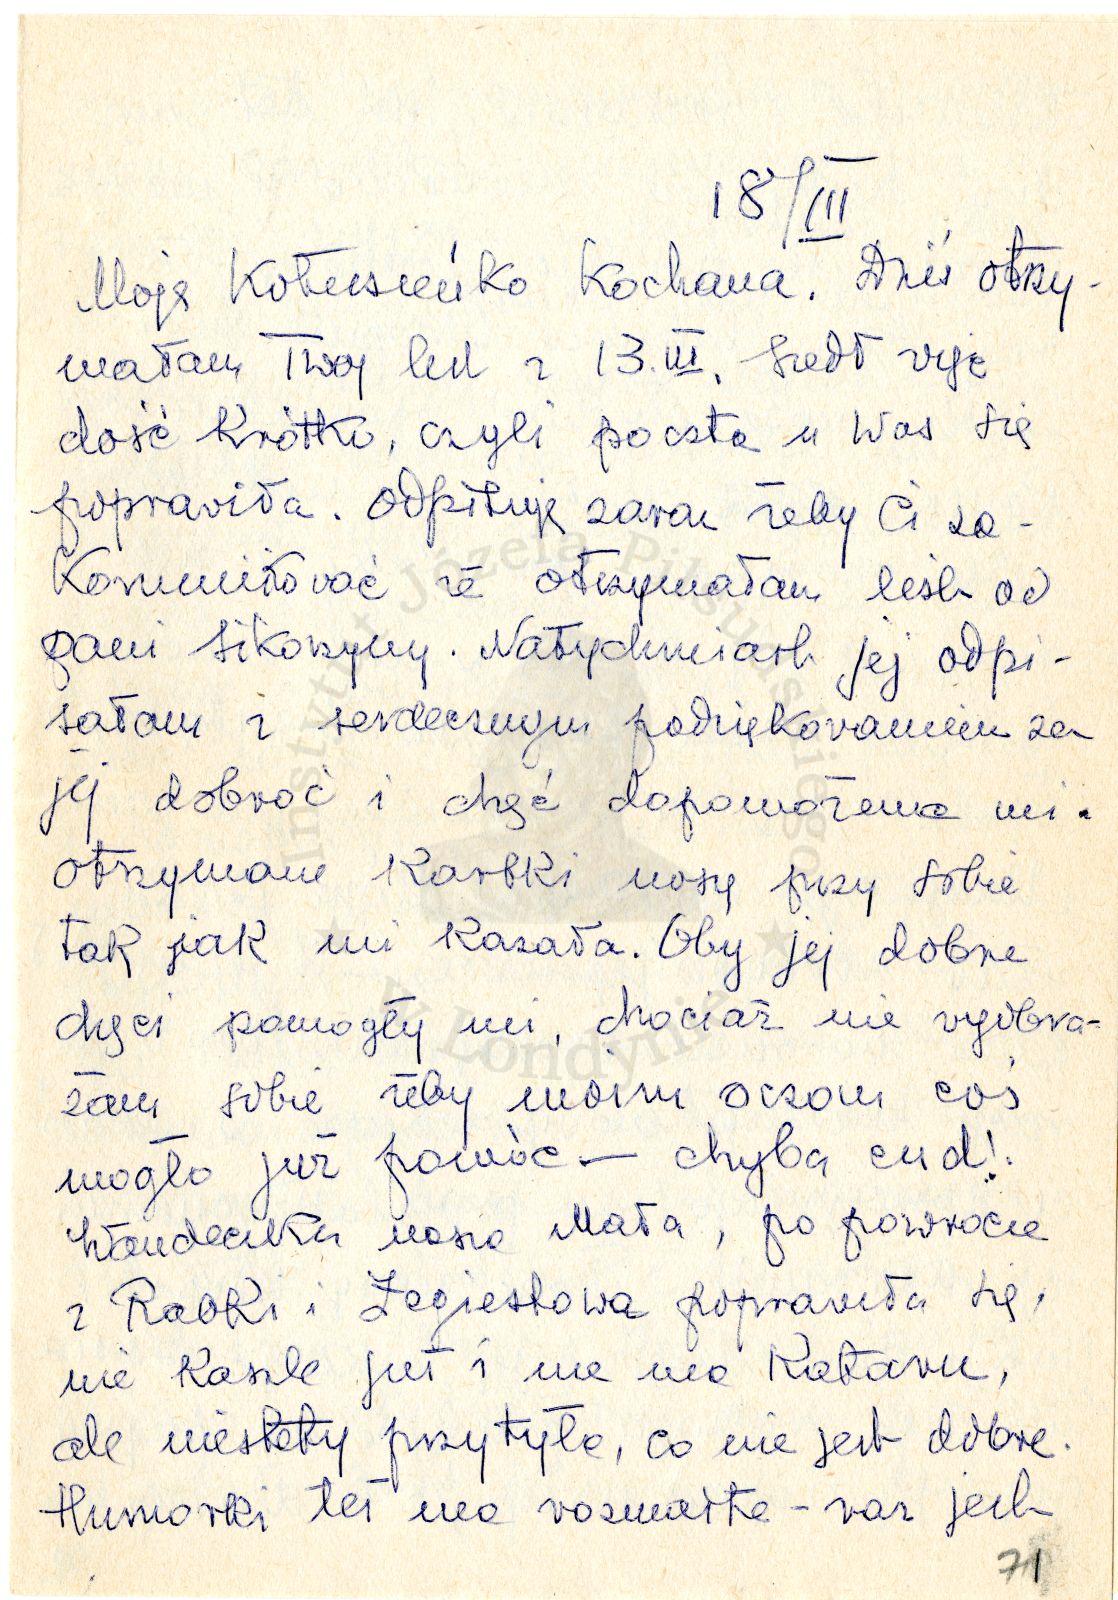 18/III
Moja Kotusieńko Kochana. Dziś otrzy-
małam Twój list z 13.III. Szedł więc
dość krótko, czyli poczta u Was się
poprawiła. Odpisuję zaraz żeby Ci za-
komunikować że otrzymałam list od
pani Sikorzyny. Natychmiast jej odpi-
sałam z serdecznym podziękowaniem za
jej dobroć i chęć dopomożenia mi.
Otrzymane kartki noszę przy sobie
tak jak mi kazała. Oby jej dobre
chęci pomogły mi, chociaż nie wyobra-
żam sobie żeby moim oczom coś
mogło już pomóc — chyba cud!
Wandeczka nasza Mała, po powrocie
z Rabki i Żegiestowa poprawiła się,
nie kaszle już i nie ma kataru,
ale niestety przytyła, co nie jest dobre.
Humorki też ma rozmaite - raz jest
71
Instytut Józefa Piłsudskiego
w Londynie